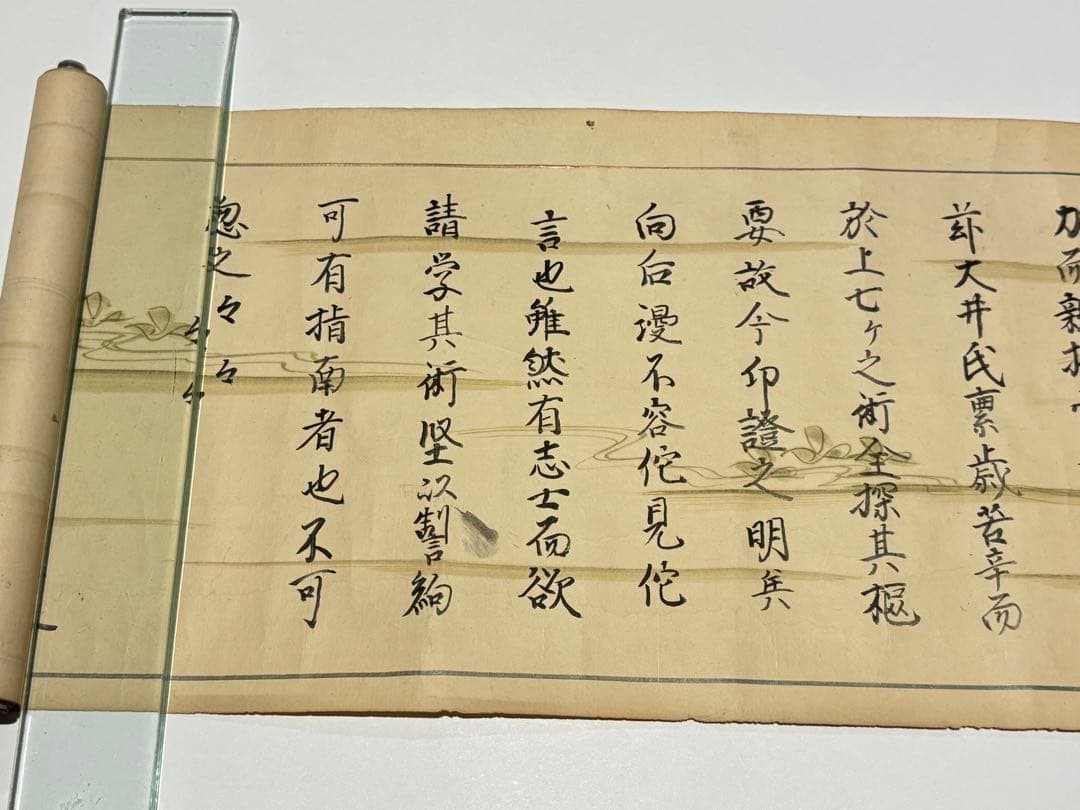 力而新
茲大井氏累歳苦辛而
於上七ヶ之術全探其樞
要故今印證之明矣
向后漫不容佗見佗
言也雖然有志士而欲
請学其術堅以誓約
可有指南者也不可
忽之々々々